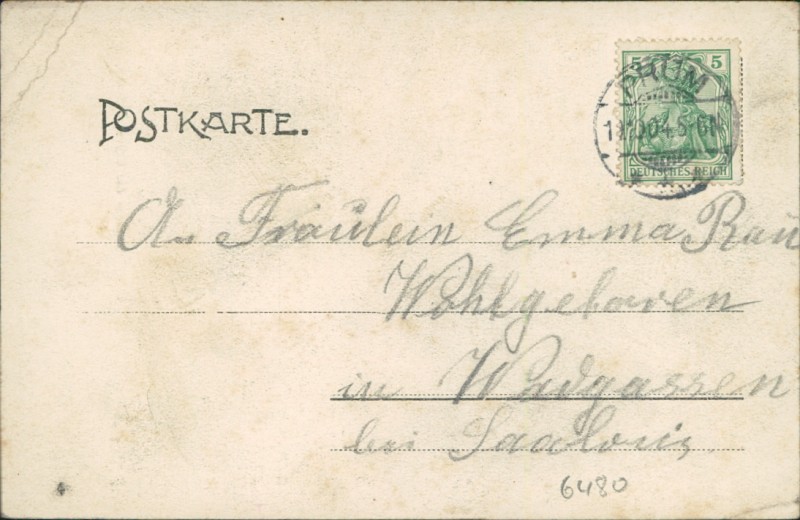 POSTKARTE.
5 5
PRÜM
5-6N
DEUTSCHES REICH
An Fräulein Emma Rau
Wohlgeboren
in Wadgassen
bei Saalouis
6480